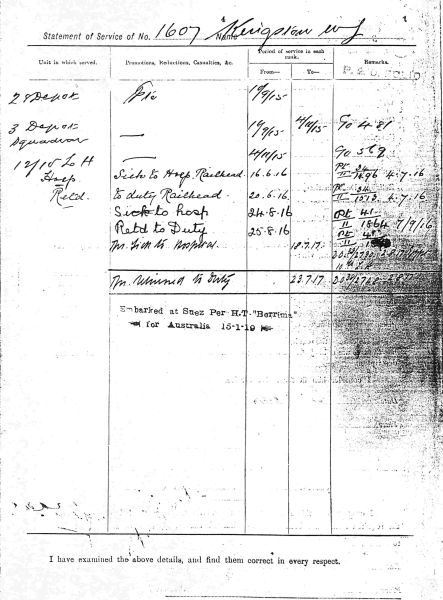 Statement of Service of No. 1607 Name Kingston W J
Unit in which served. Promotions, Reductions, Casualties, &c. Period of service in each rank. From— To— Remarks.
2 8 Depot Pte 19/9/15
3 Depot Squadron — 19/9/15 4/11/15 GO 481
12/10 L H — 4/11/15 GO 569
Hosp. Sick to Hosp. Railhead. 16.6.16 Pt 34 II 1296 4.7.16
Retd. to duty Railhead 20.6.16 Pt 34 II 4.7.16
Sick to hosp 24.8.16 Pt 41 II 1864 7/9/16
Retd to Duty 25.8.16 Pt 41 II
Tpr. Sick to Hospital 18.7.17
Tpr. returned to Duty 23.7.17
Embarked at Suez Per H.T. "Berrima"
for Australia 15-1-19
I have examined the above details, and find them correct in every respect.